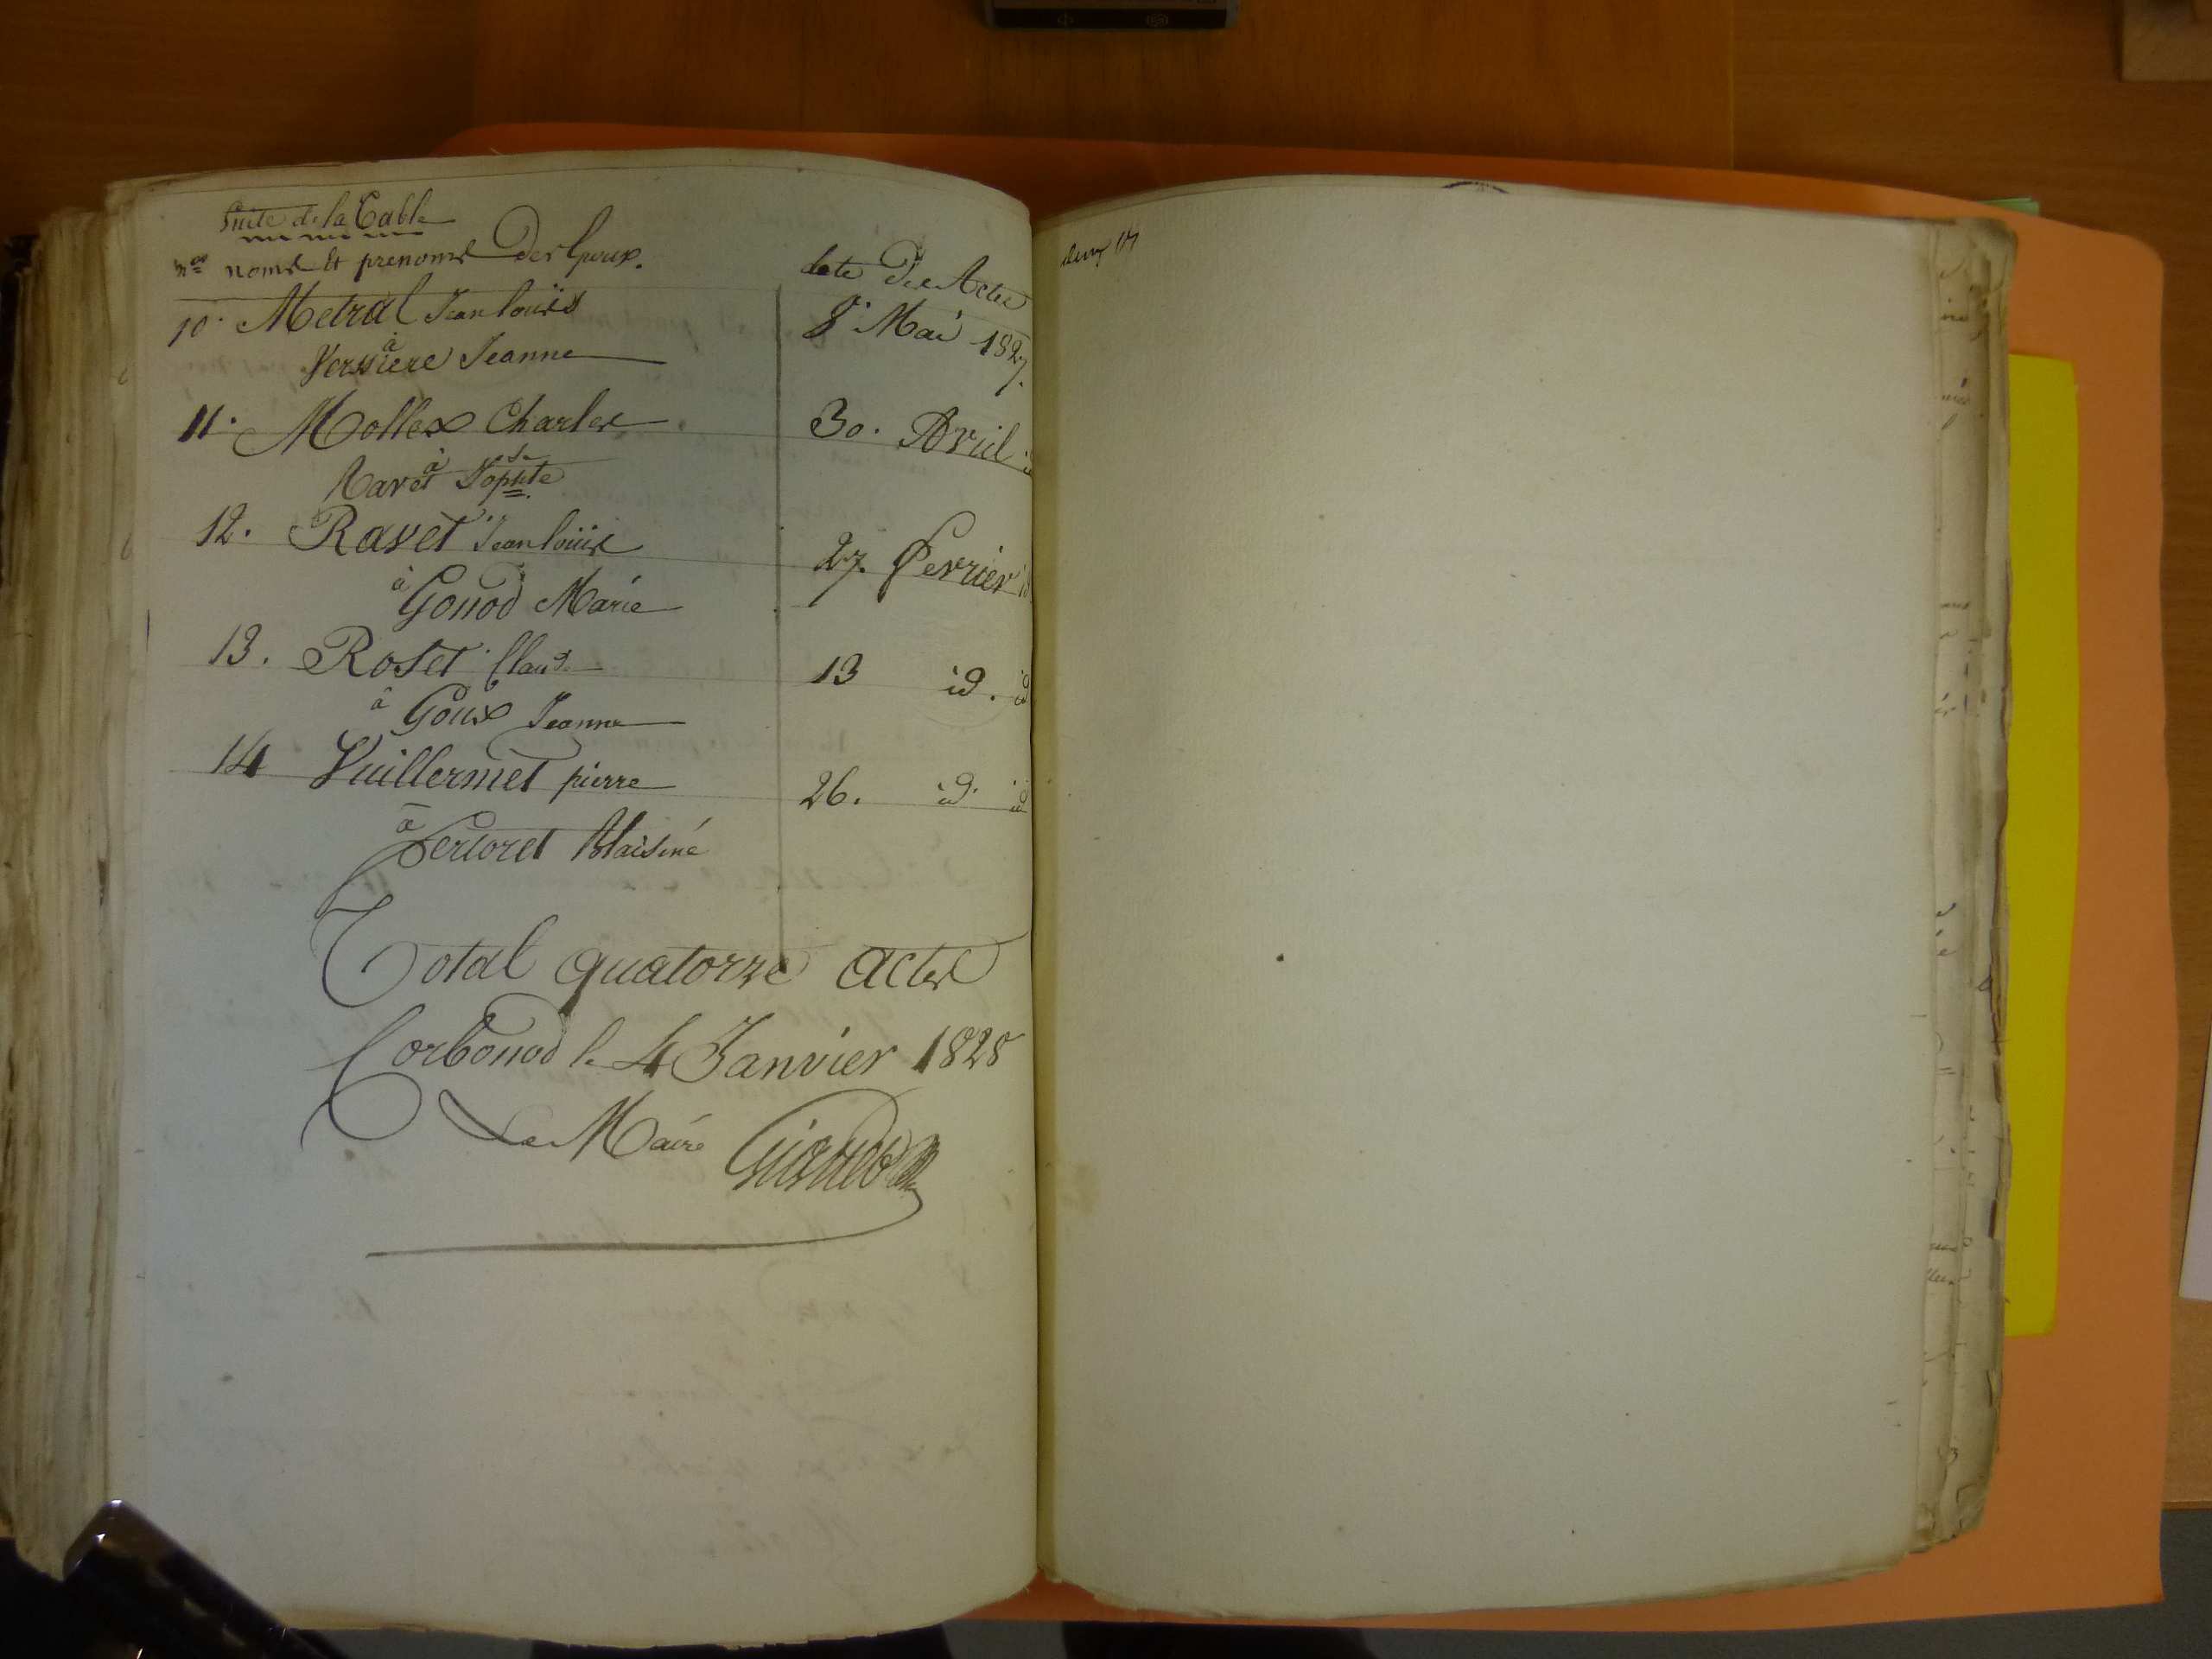 Suite de la Table
nos noms et prenoms des Epoux.
date des Actes
10. Metral Jean louis
8. Mai 1827.
à
Verssiere Jeanne
11. Mollex Charles
30. Avril
à
Ravet
12. Ravet Jean louis
27. fevrier
à Gonod Marie
13. Roset Claude
13 id. id
à Goux Jeanne
14 Vuillermet pierre
26. id. id
à
Pertoret Blaisine
Total quatorze actes
Corbonod le 4 Janvier 1828
Le Maire